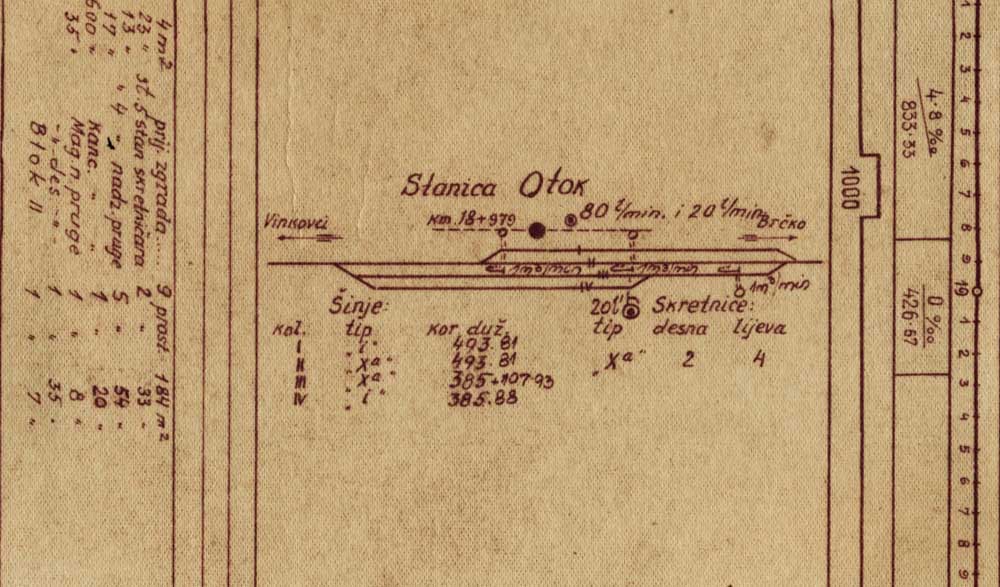 Stanica Otok
km. 18+979 80 l/min. i 20 l/min.
Vinkovci Brčko
II
1m³/min III 1m³/min
IV 1m³/min
Šinje: 20l' Skretnice:
kol. tip kor. duž. tip desna lijeva
I "i" 493.81
II "Xa" 493.81 "Xa" 2 4
III "Xa" 385+107.93
IV "i" 385.88
4 m² prij. zgrada..... 9 prost. 184 m²
23 " st. 5 stan skretničara 2 " 33 "
13 " " 4 " nadz. pruge 5 " 54 "
17 " Kanc. " " 1 " 20 "
600 " Mag. n. pruge 1 " 8 "
35 " -"- des -"- 1 " 35 "
Blok II 1 " 7 "
1000
4.8 ‰
833.33
0 ‰
426.67
1
2
3
4
5
6
7
8
9
19
1
2
3
4
5
6
7
8
9